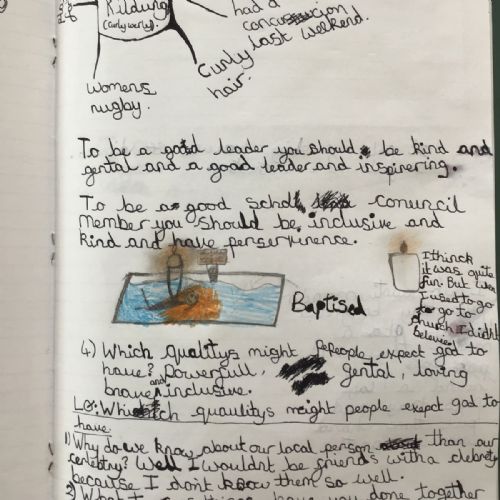 Kildung
(Curly wurly)
had a
concussion
last weekend.
Curly
hair.
Womens
rugby.
To be a good leader you should be kind and
gental and a good leader and inspirering.
To be a good School conuncil
Member you should be inclusive and
kind and have perserverence.
I thinck
it was quite
fun. But when
I used to go
to go to
church I didn't
believed
Baptised
4) Which qualitys might Pepeople expect god to
have? Powerfull, gental, loving
brave and inclusive.
LO: Which quauitys might people expect god to
have
1) Why do we know about our local person than our
celebtry? Well I wouldnt be friends with a clebrety
because I don't know them so well.
2) What have you done together